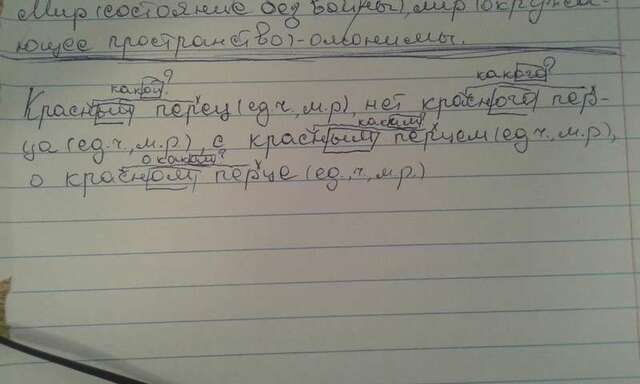 Мир (состояние без войны), мир (окружа-
ющее пространство) - омонимы.
какой? какого?
Красный перец (ед.ч., м.р.), нет красного пер-
каким?
ца (ед.ч., м.р.), с красным перцем (ед.ч., м.р.),
о каком?
о красном перце (ед.ч., м.р.)